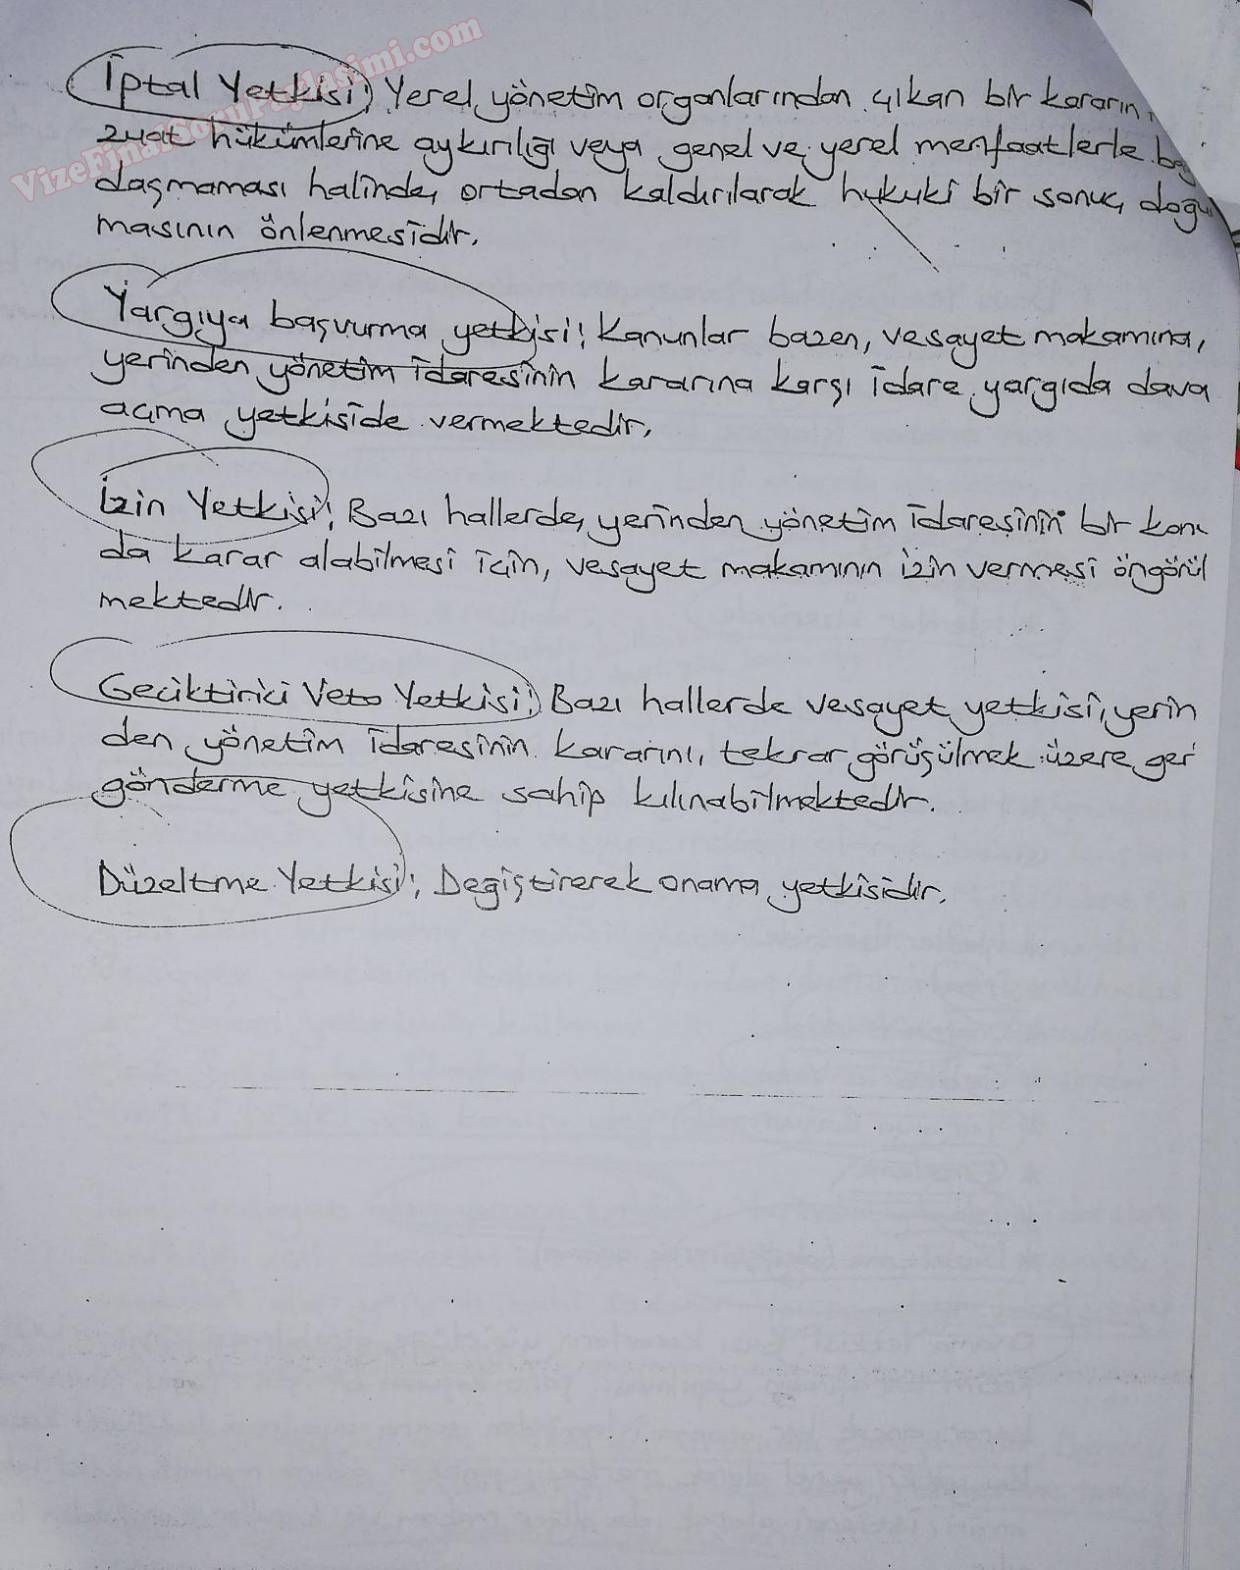 VizeFinalSoruPaylasimi.com
İptal Yetkisi; Yerel yönetim organlarından çıkan bir kararın,
zuat hükümlerine aykırılığı veya genel ve yerel menfaatlerle bağ
daşmaması halinde, ortadan kaldırılarak hukuki bir sonuç doğur
masının önlenmesidir.
Yargıya başvurma yetkisi; Kanunlar bazen, vesayet makamına,
yerinden yönetim idaresinin kararına karşı idare yargıda dava
açma yetkiside vermektedir.
İzin Yetkisi; Bazı hallerde, yerinden yönetim idaresinin bir konu
da karar alabilmesi için, vesayet makamının izin vermesi öngörül
mektedir.
Geciktirici Veto Yetkisi; Bazı hallerde vesayet yetkisi, yerin
den yönetim idaresinin kararını, tekrar görüşülmek üzere geri
gönderme yetkisine sahip kılınabilmektedir.
Düzeltme Yetkisi; Değiştirerek onama yetkisidir.